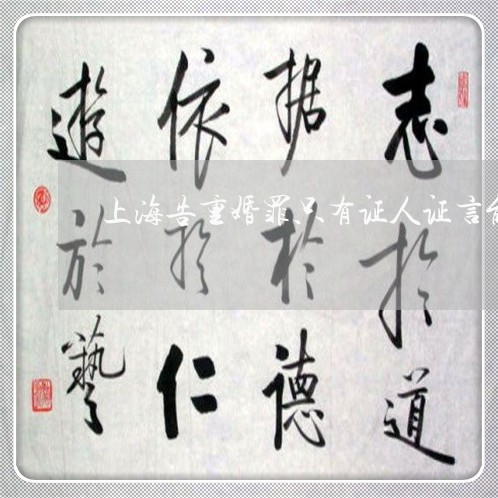 志於道
据於德
依於仁
遊於藝
上海告重婚罪、只有证人证言